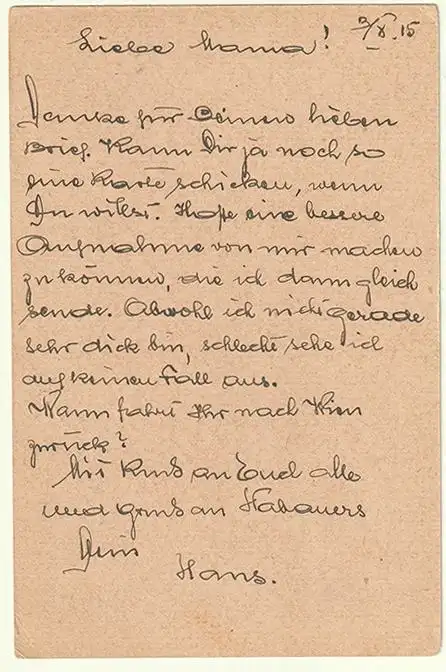 Liebe Mama! 2/X. 15
Danke für Deinen lieben
Brief. Kann Dir ja noch so
eine Karte schicken, wenn
Du willst. Hoffe eine bessere
Aufnahme von mir machen
zu können, die ich dann gleich
sende. Obwohl ich nicht gerade
sehr dick bin, schlecht sehe ich
auf keinen Fall aus.
Wann fahrt Ihr nach Wien
zurück?
Mit Kuss an Euch alle
und Gruss an Habauers
Dein
Hans.